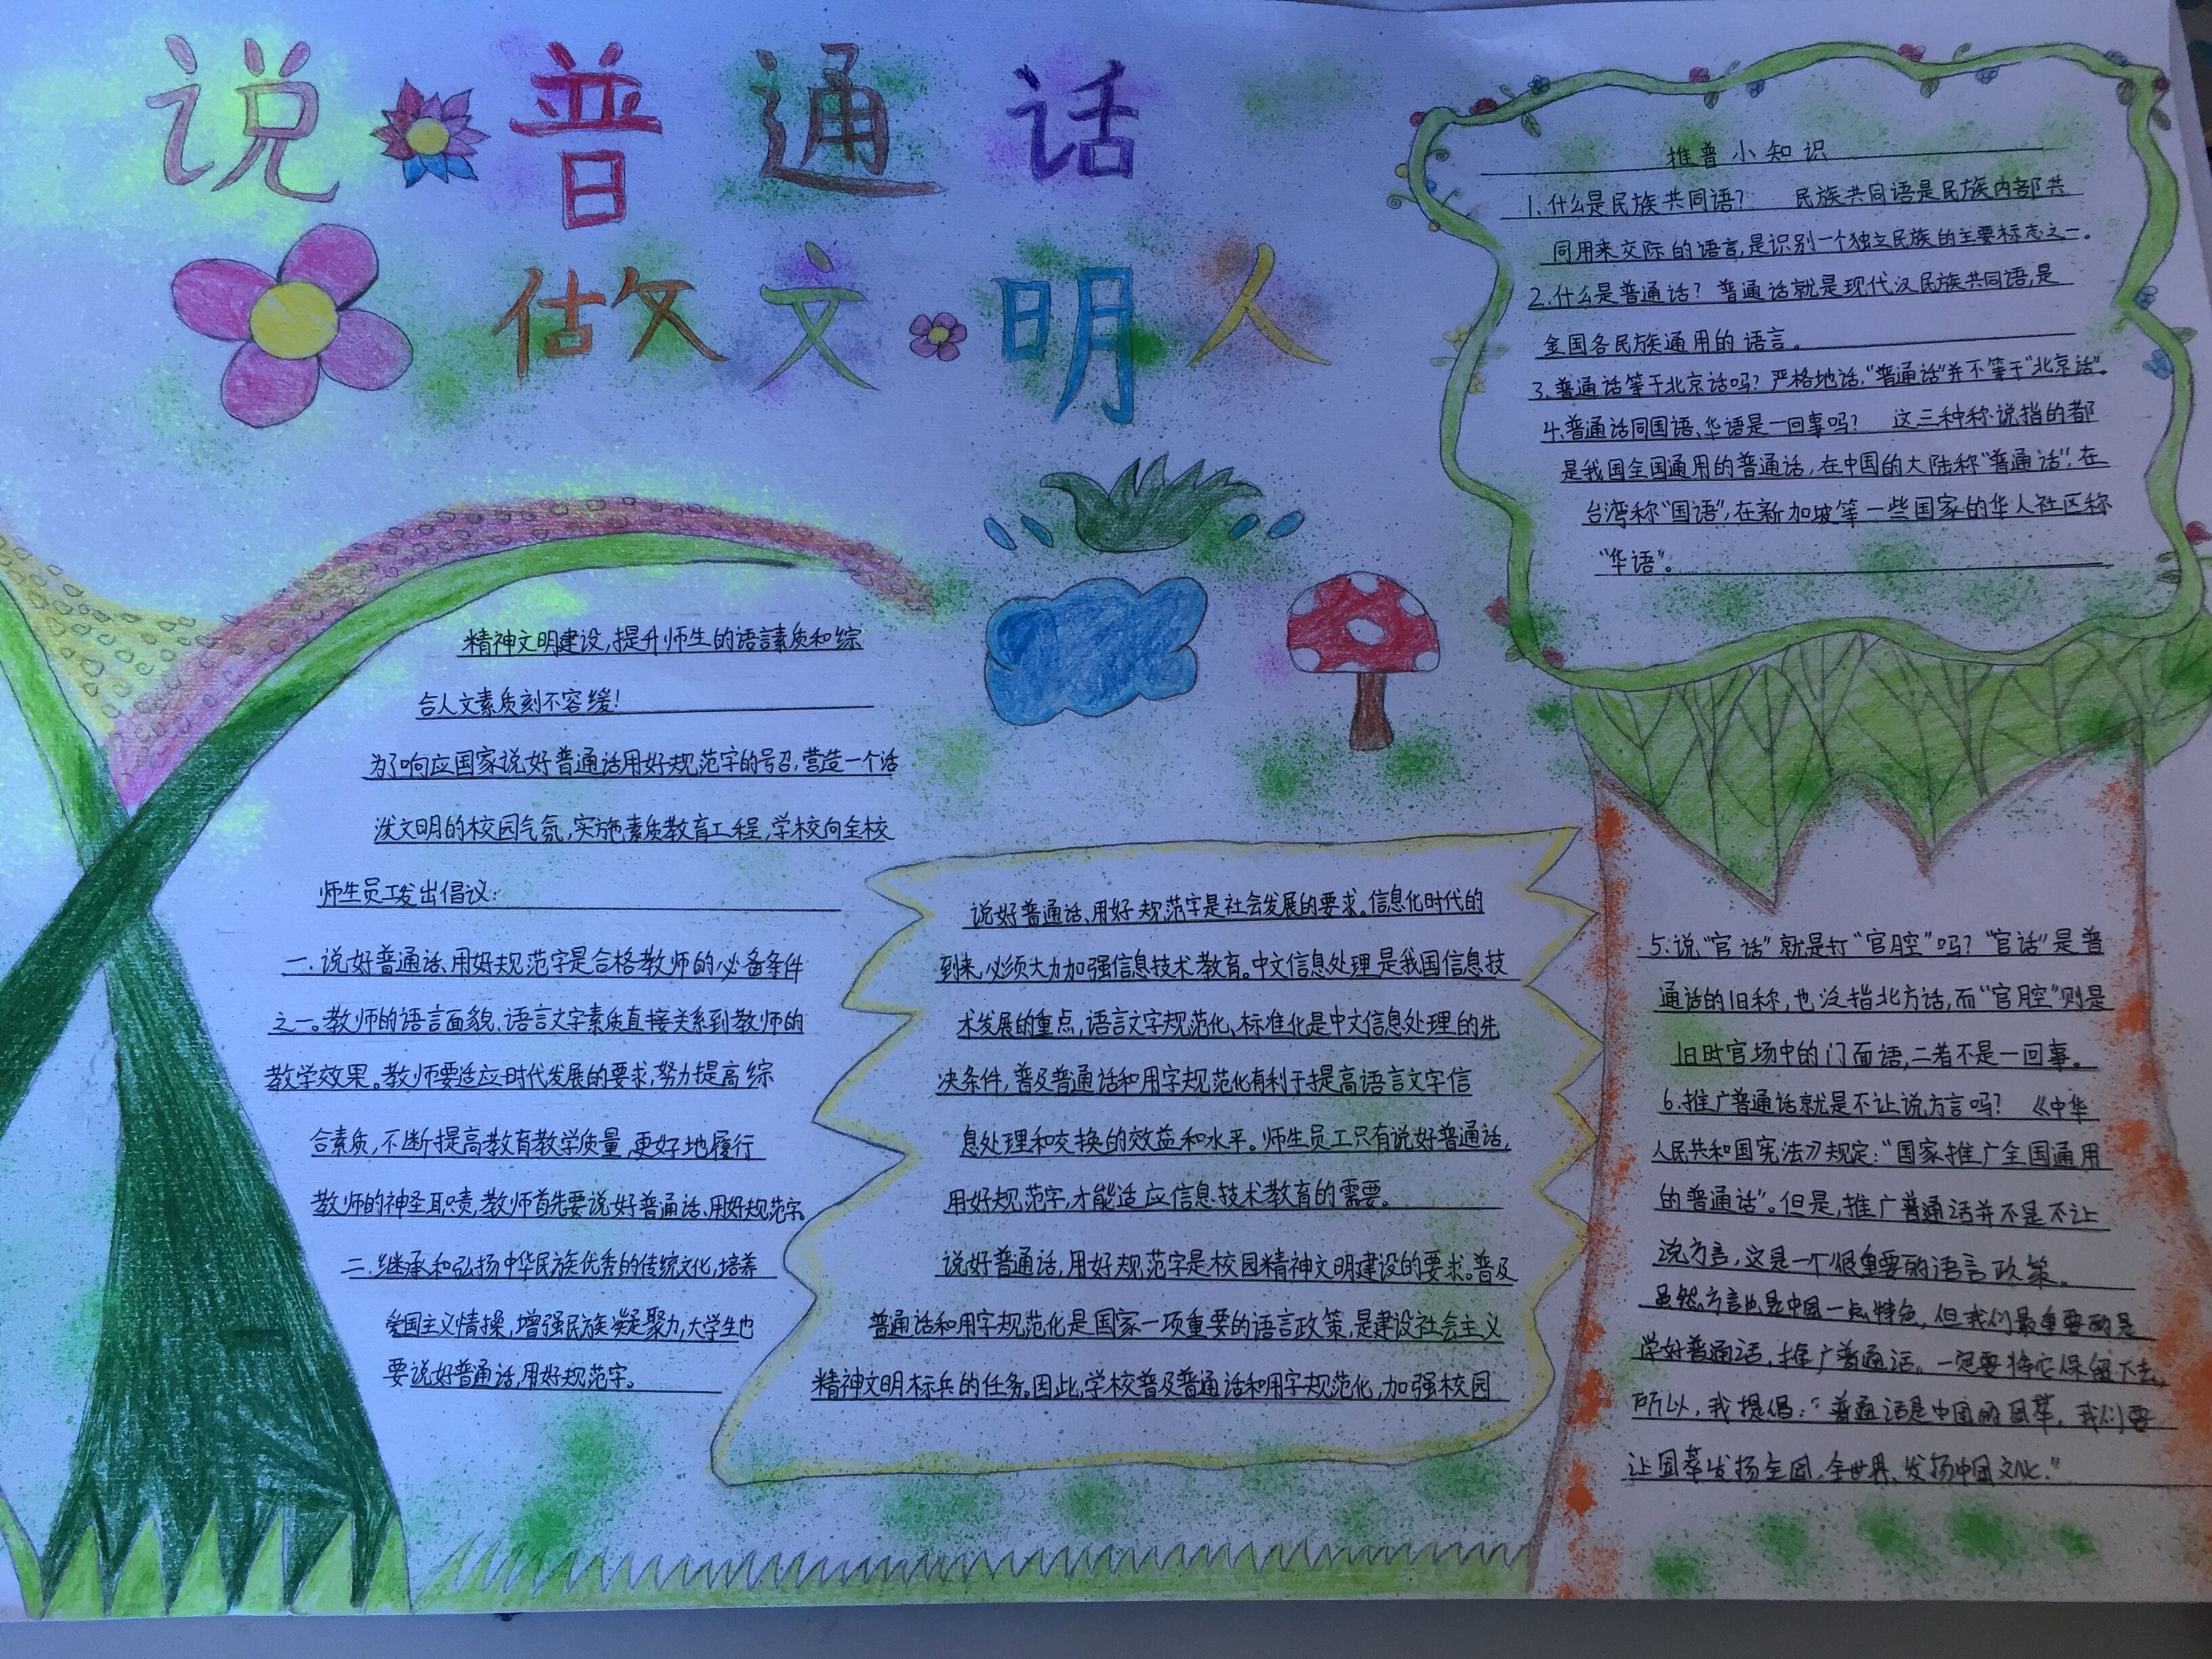 说普通话
做文明人
推普小知识
1.什么是民族共同语? 民族共同语是民族内部共
同用来交际的语言,是识别一个独立民族的主要标志之一。
2.什么是普通话? 普通话就是现代汉民族共同语,是
全国各民族通用的语言。
3.普通话等于北京话吗? 严格地话,“普通话”并不等于“北京话”。
4.普通话同国语、华语是一回事吗? 这三种称说指的都
是我国全国通用的普通话,在中国的大陆称“普通话”,在
台湾称“国语”,在新加坡等一些国家的华人社区称
“华语”。
精神文明建设,提升师生的语言素质和综
合人文素质刻不容缓!
为了响应国家说好普通话用好规范字的号召,营造一个活
泼文明的校园气氛,实施素质教育工程,学校向全校
师生员工发出倡议:
一.说好普通话、用好规范字是合格教师的必备条件
之一。教师的语言面貌、语言文字素质直接关系到教师的
教学效果。教师要适应时代发展的要求,努力提高综
合素质,不断提高教育教学质量,更好地履行
教师的神圣职责,教师首先要说好普通话、用好规范字。
二.继承和弘扬中华民族优秀的传统文化,培养
爱国主义情操,增强民族凝聚力,大学生也
要说好普通话,用好规范字。
说好普通话、用好规范字是社会发展的要求。信息化时代的
到来,必须大力加强信息技术教育。中文信息处理是我国信息技
术发展的重点,语言文字规范化、标准化是中文信息处理的先
决条件,普及普通话和用字规范化有利于提高语言文字信
息处理和交换的效益和水平。师生员工只有说好普通话,
用好规范字,才能适应信息技术教育的需要。
说好普通话,用好规范字是校园精神文明建设的要求。普及
普通话和用字规范化是国家一项重要的语言政策,是建设社会主义
精神文明标兵的任务。因此,学校普及普通话和用字规范化,加强校园
5.说“官话”就是打“官腔”吗? “官话”是普
通话的旧称,也泛指北方话,而“官腔”则是
旧时官场中的门面语,二者不是一回事。
6.推广普通话就是不让说方言吗? 《中华
人民共和国宪法》规定:“国家推广全国通用
的普通话”。但是,推广普通话并不是不让
说方言,这是一个很重要的语言政策。
虽然方言也是中国一点特色,但我们最重要的是
学好普通话,推广普通话。一定要将它保留下去,
所以,我提倡:“普通话是中国的国萃,我们要
让国萃发扬全国,全世界、发扬中国文化.”